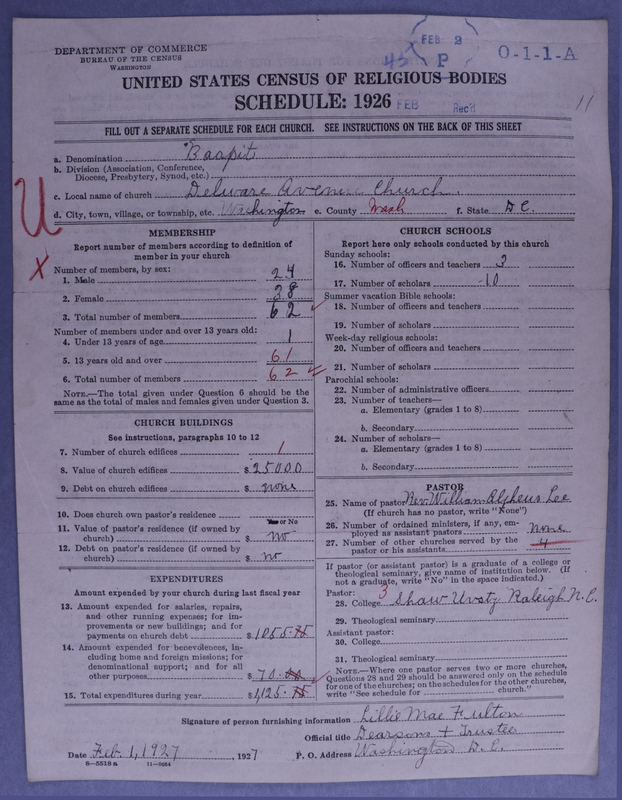 DEPARTMENT OF COMMERCE
BUREAU OF THE CENSUS
WASHINGTON
FEB 2
P
45
O-1-1-A
UNITED STATES CENSUS OF RELIGIOUS BODIES
SCHEDULE: 1926
FEB Rec'd
11
FILL OUT A SEPARATE SCHEDULE FOR EACH CHURCH. SEE INSTRUCTIONS ON THE BACK OF THIS SHEET
a. Denomination Baapit
b. Division (Association, Conference, Diocese, Presbytery, Synod, etc.)
c. Local name of church Delware Avenue Church.
d. City, town, village, or township, etc. Washington e. County Wash f. State D.C.
U
X
MEMBERSHIP
Report number of members according to definition of
member in your church
Number of members, by sex:
1. Male 24
2. Female 38
3. Total number of members 62
Number of members under and over 13 years old:
4. Under 13 years of age 1
5. 13 years old and over 61
6. Total number of members 62
NOTE.—The total given under Question 6 should be the
same as the total of males and females given under Question 3.
CHURCH BUILDINGS
See instructions, paragraphs 10 to 12
7. Number of church edifices 1
8. Value of church edifices $ 25000
9. Debt on church edifices $ none
10. Does church own pastor's residence Yes or No
11. Value of pastor's residence (if owned by
church) $ no
12. Debt on pastor's residence (if owned by
church) $ no
EXPENDITURES
Amount expended by your church during last fiscal year
13. Amount expended for salaries, repairs,
and other running expenses; for im-
provements or new buildings; and for
payments on church debt $ 1055.75
14. Amount expended for benevolences, in-
cluding home and foreign missions; for
denominational support; and for all
other purposes $ 70.00
15. Total expenditures during year $ 1,125.75
CHURCH SCHOOLS
Report here only schools conducted by this church
Sunday schools:
16. Number of officers and teachers 3
17. Number of scholars 10
Summer vacation Bible schools:
18. Number of officers and teachers
19. Number of scholars
Week-day religious schools:
20. Number of officers and teachers
21. Number of scholars
Parochial schools:
22. Number of administrative officers
23. Number of teachers—
a. Elementary (grades 1 to 8)
b. Secondary
24. Number of scholars—
a. Elementary (grades 1 to 8)
b. Secondary
PASTOR
25. Name of pastor Rev. William Alpheus Lee
(If church has no pastor, write "None")
26. Number of ordained ministers, if any, em-
ployed as assistant pastors None
27. Number of other churches served by the
pastor or his assistants 4
If pastor (or assistant pastor) is a graduate of a college or
theological seminary, give name of institution below. (If
not a graduate, write "No" in the space indicated.)
Pastor: 3
28. College Shaw Uvsty Raleigh N.C.
29. Theological seminary
Assistant pastor:
30. College
31. Theological seminary
NOTE.—Where one pastor serves two or more churches,
Questions 28 and 29 should be answered only on the schedule
for one of the churches; on the schedules for the other churches,
write "See schedule for church."
Signature of person furnishing information Lillie Mae Fulton
Official title Dearsons + Trustee
Date Feb. 1, 1927, 1927 P. O. Address Washington D.C.
8-5518a 11-9684